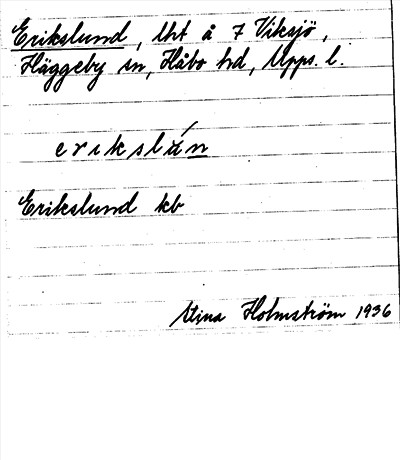 Erikslund, lht å 7 Viksjö,
Häggeby sn, Håbo hd, Upps. l.
erikslún
Erikslund kb
Stina Holmström 1936